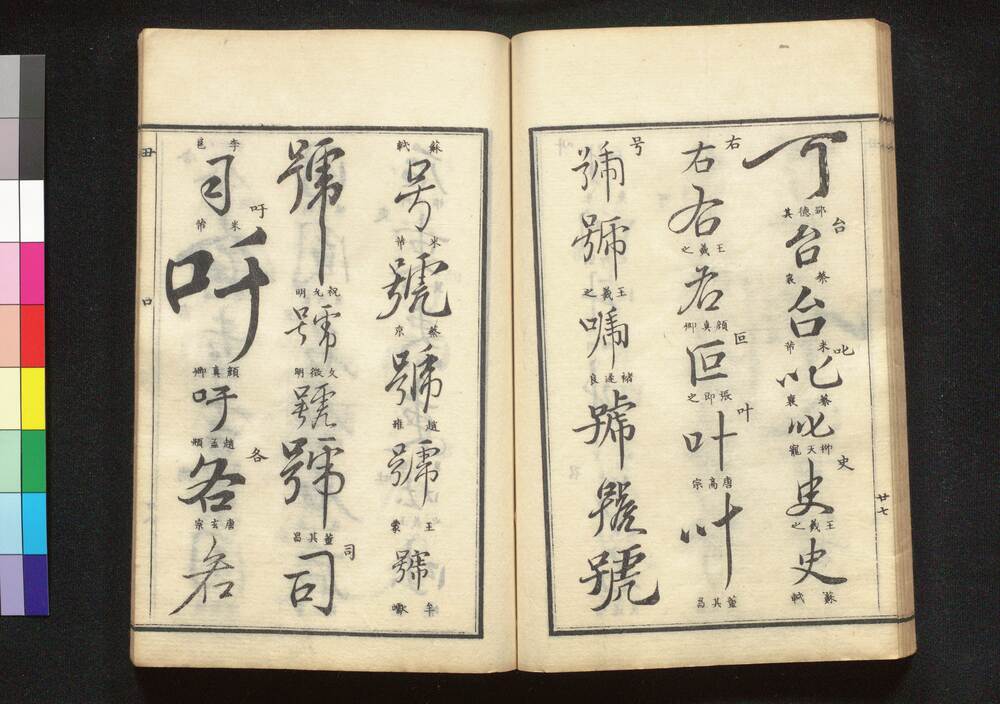 可
台
台
蔡襄
台
米芾
叱
叱
蔡襄
叱
柳天寵
史
史
王羲之
史
蘇軾
廿七
右
右
右
王羲之
右
顏真卿
叵
叵
張即之
叶
叶
唐高宗
叶
董其昌
号
號
號
王羲之
號
褚遂良
號
號
號
蘇軾
号
米芾
號
蔡京
號
趙雍
號
王蒙
號
牟巘
號
祝允明
號
文徵明
號
號
董其昌
司
司
李邕
司
米芾
吁
吁
顏真卿
吁
趙孟頫
各
各
唐玄宗
各
丑
口